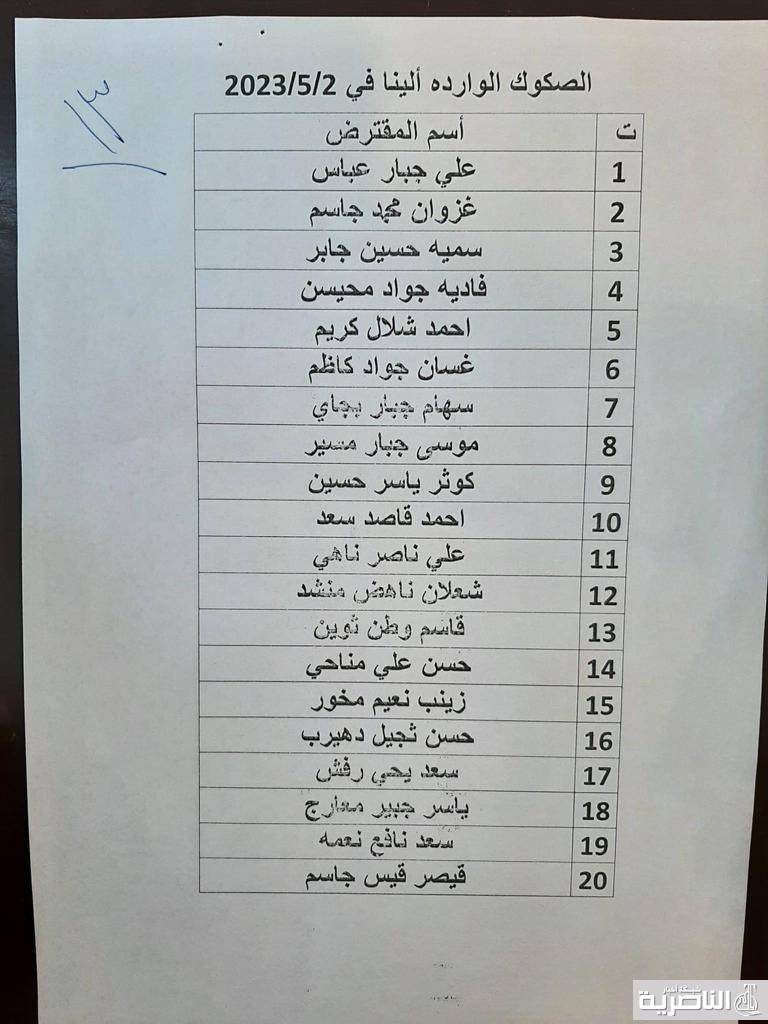 الصكوك الوارده ألينا في 2023/5/2
ت أسم المقترض
1 علي جبار عباس
2 غزوان محمد جاسم
3 سميه حسين جابر
4 فاديه جواد محيسن
5 احمد شلال كريم
6 غسان جواد كاظم
7 سهام جبار بجاي
8 موسى جبار مسير
9 كوثر ياسر حسين
10 احمد قاصد سعد
11 علي ناصر ناهي
12 شعلان ناهض منشد
13 قاسم وطن ثوين
14 حسن علي مناحي
15 زينب نعيم مخور
16 حسن ثجيل دهيرب
17 سعد يحي رفش
18 ياسر جبير معارج
19 سعد نافع نعمه
20 قيصر قيس جاسم
شبكة أخبار
الناصرية